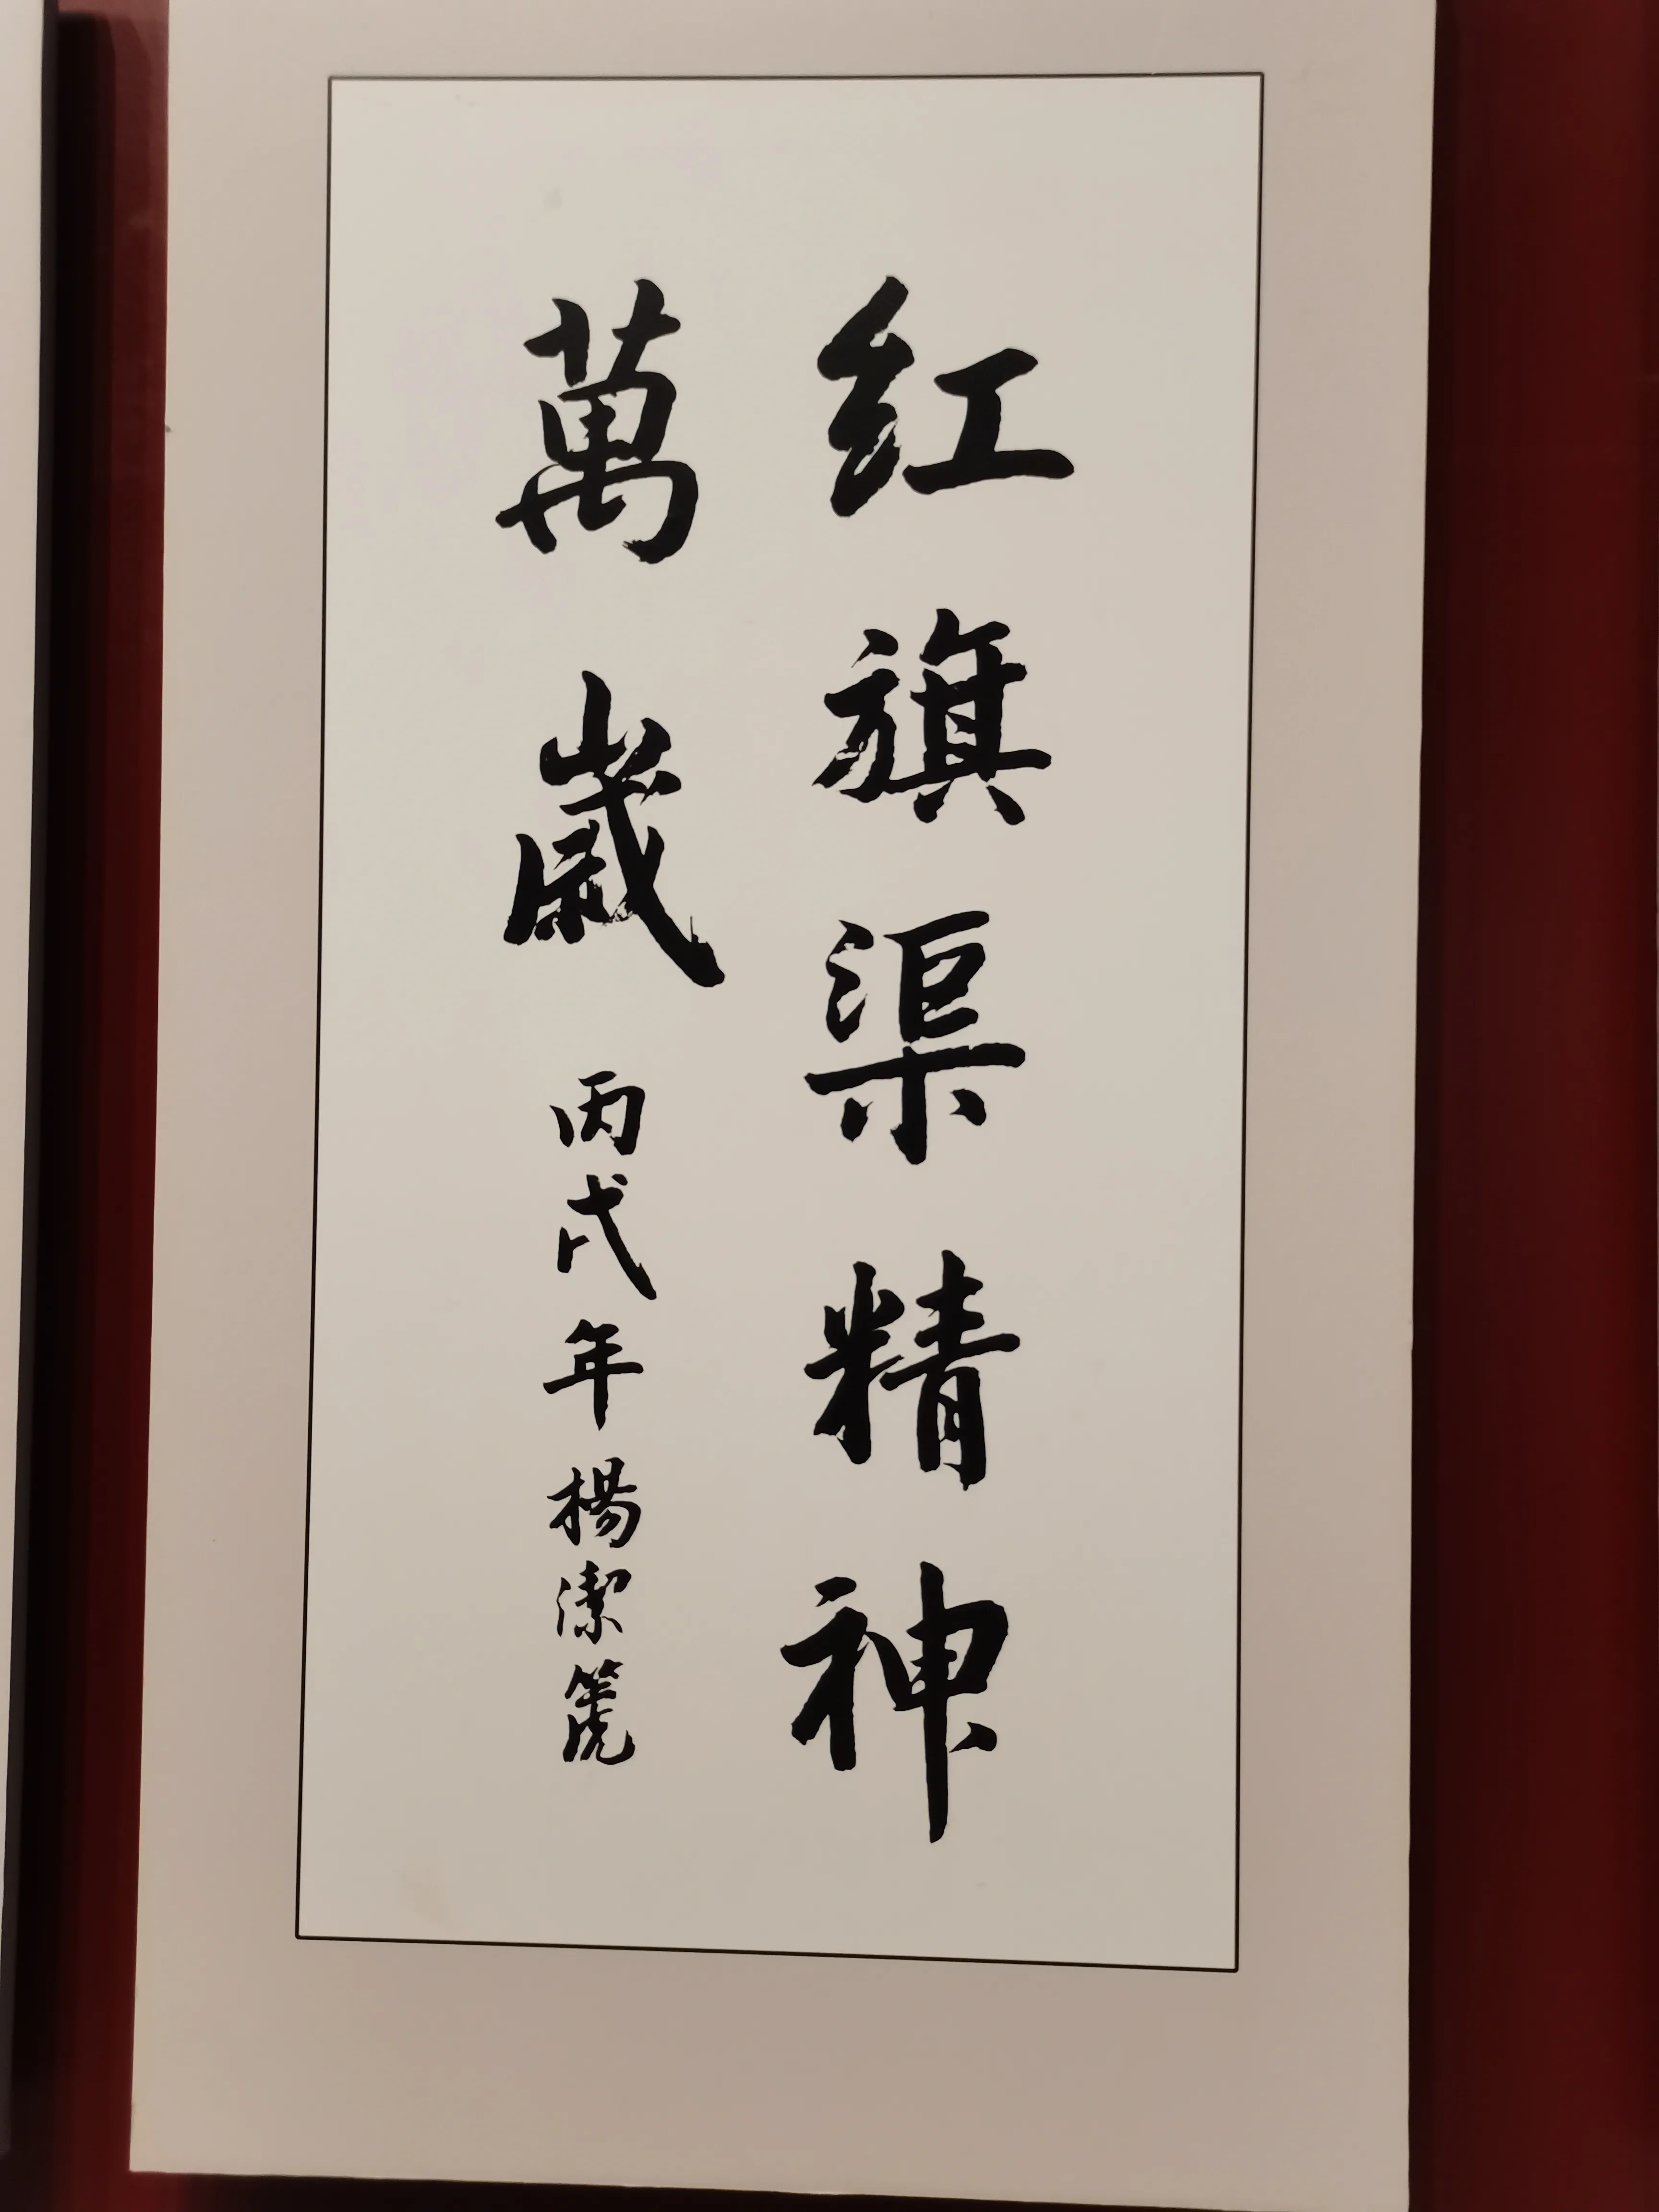 红旗渠精神
萬歲 丙戌年 楊潔篪